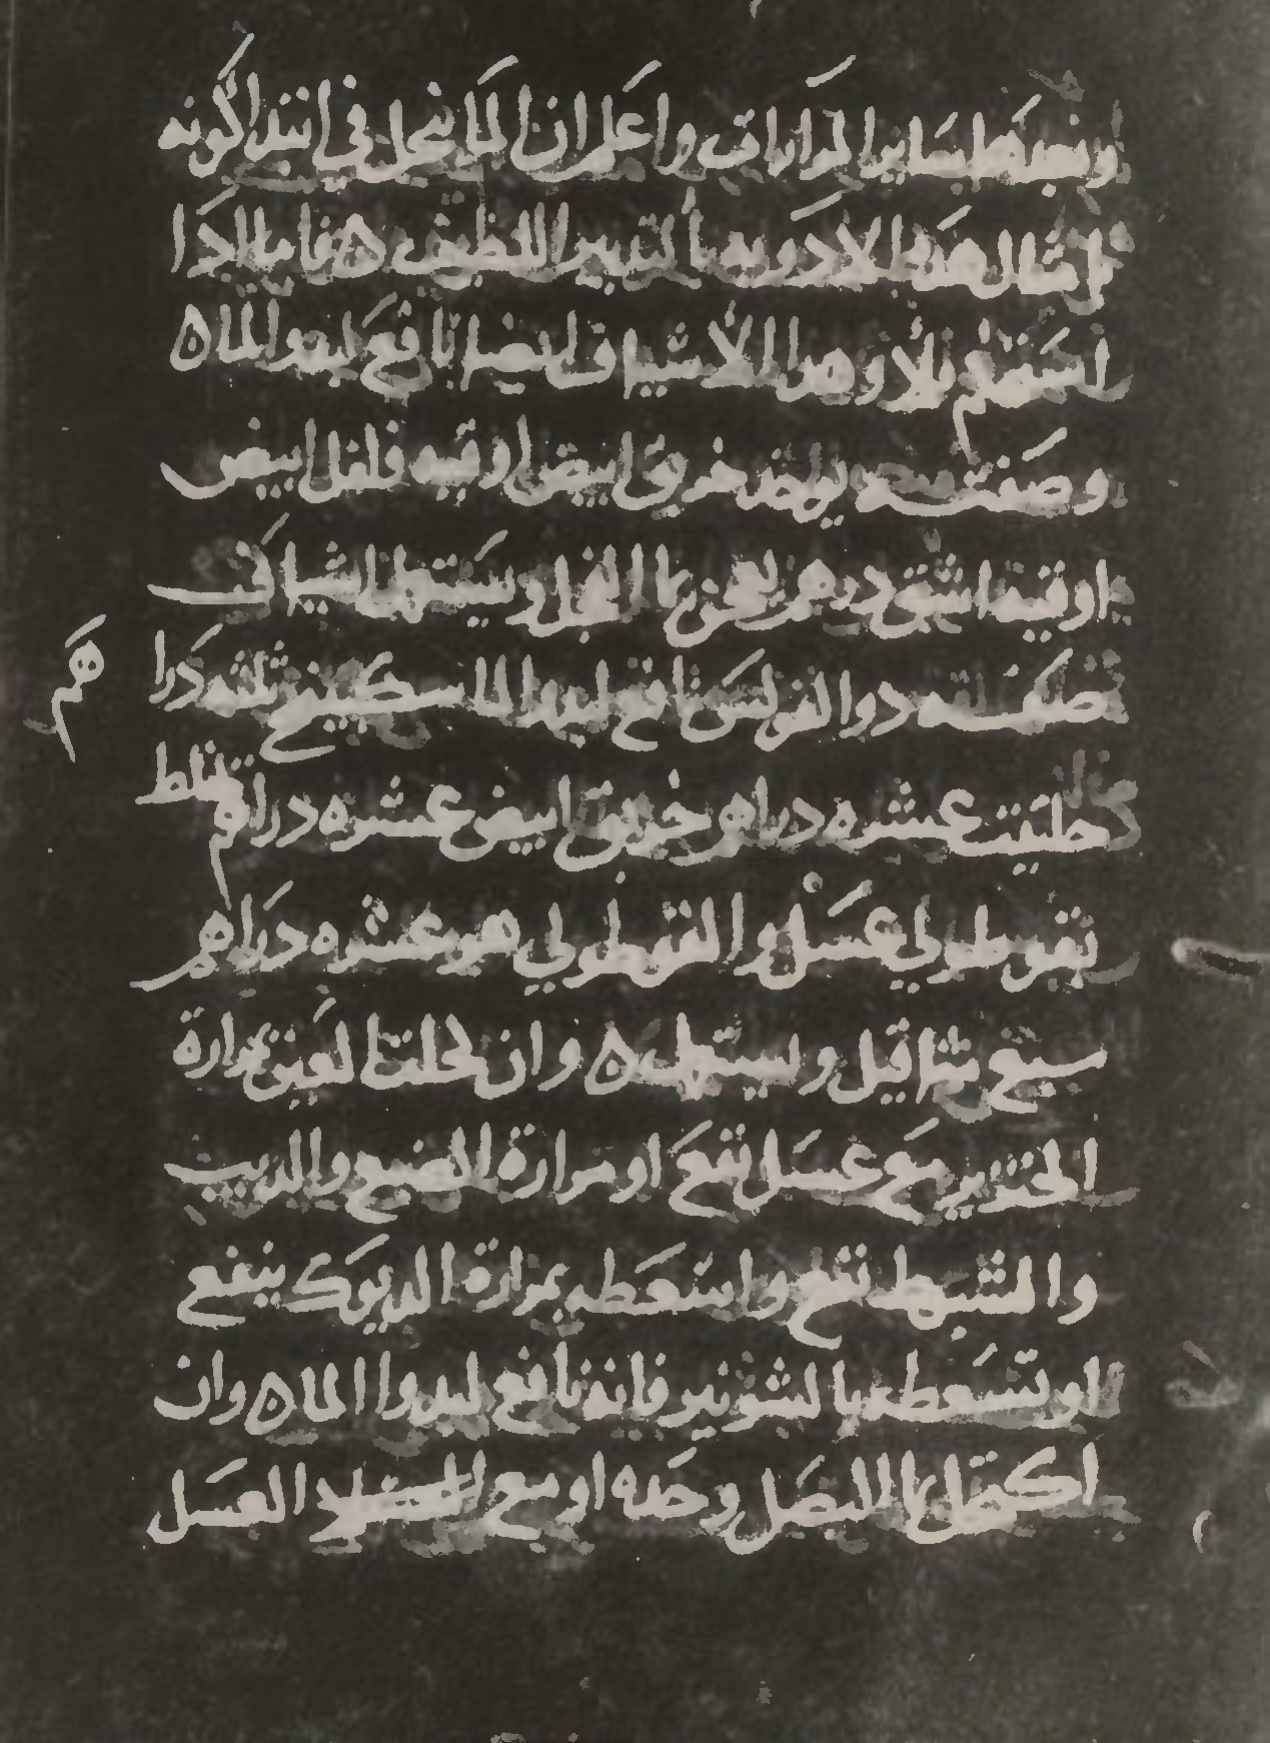 وبعدها ساير المرارات واعلم ان الما ينحل في ابتدا كونه
بامثال هذه الادويه بالتدبير اللطيف ه فاما اذا
استحكم فلا وهذا الاشياف ايضا نافع لبدو الما ه
وصفته يوخذ خربق ابيض اوقيه فلفل ابيض
اوقيه اشق درهم يعجن بما الفجل ويستعمل اشياف
صفه دوا الفرلس نافع لبدو الما سكبينج ثلثه درا
هم
حلتيت عشره دراهم خربق ابيض عشره دراهم تخلط
بقوطولي عسل والقوطولي هو عشره دراهم
سبع مثاقيل ويستعمل ه وان كحلت العين بمرارة
الخنزير مع عسل نفع او مرارة الضبع والديب
والشبوط نفع واسعطه بمرارة الديوك ينفع
او تسعطه بالشونيز فانه نافع لبدو الما ه وان
اكتحل بما البصل وحده او مع العسل